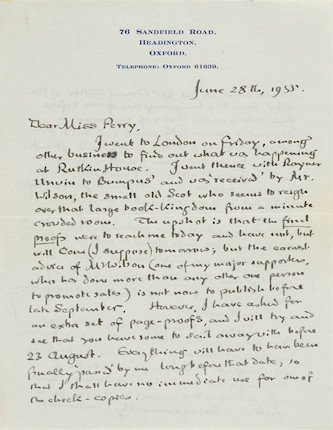 76 SANDFIELD ROAD,
HEADINGTON,
OXFORD.
TELEPHONE: OXFORD 61639.
June 28th, 1955.
Dear Miss Perry,
I went to London on Friday, among
other business to find out what was happening
at Ruskin House. I went thence with Rayner
Unwin to Bumpus' and was received by Mr.
Wilson, the small old Scot who seems to reign
over that large book-kingdom from a minute
crowded room. The upshot is that the final
proofs were to reach me today and have not, but
will come (I suppose) tomorrow; but the earnest
advice of Mr Wilson (one of my major supporters,
who has done more than any other one person
to promote sales) is not now to publish before
late September. However, I have asked for
an extra set of page-proofs, and I will try and
see that you have some to sail away with before
23 August. Everything will have to have been
finally 'passed' by me long before that date, so
that I shall have no immediate use for one of
the check-copies.